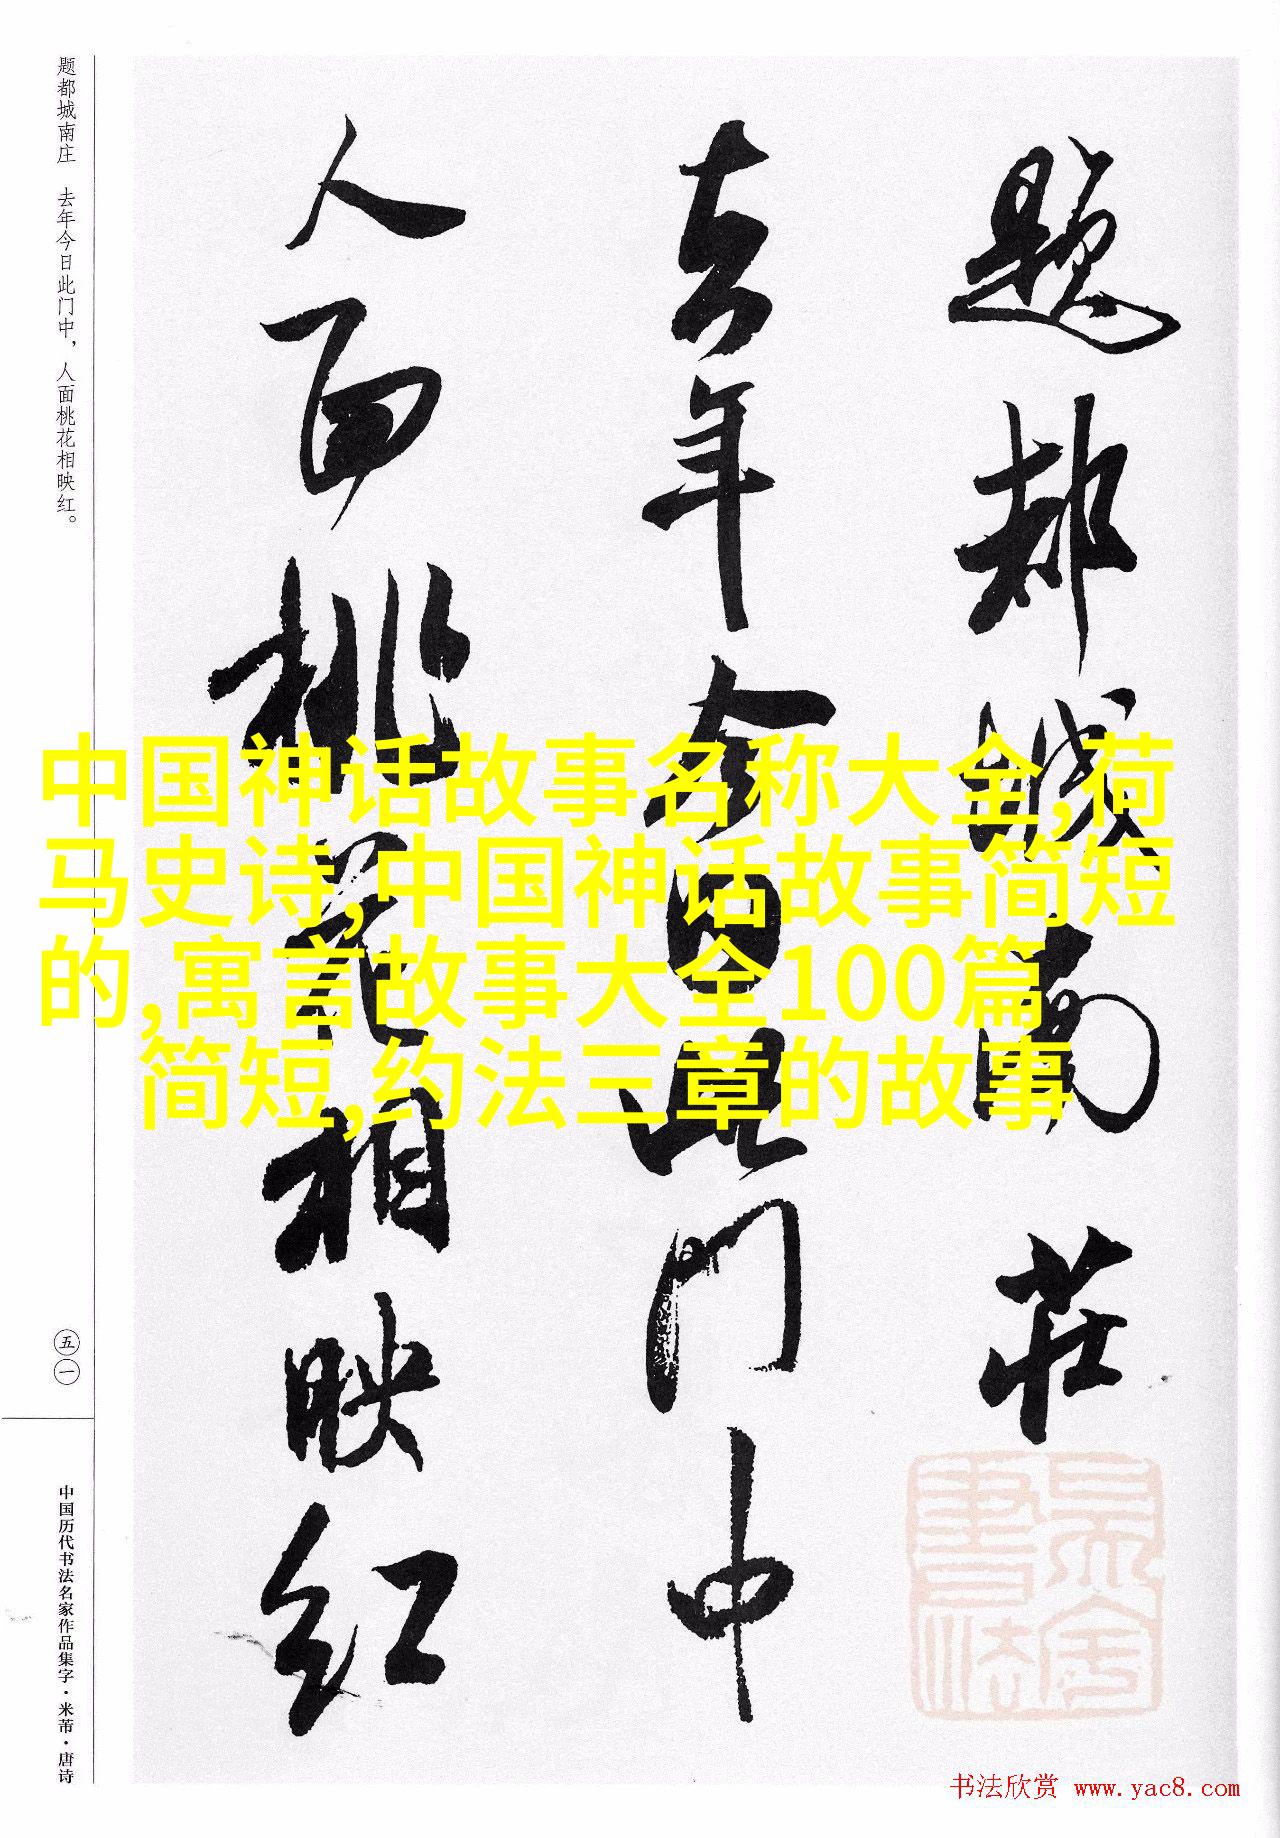 题都城南莊
去年今日此门中
人面桃花相映红
题都城南庄 去年今日此门中，人面桃花相映红。
五一
中国历代书法名家作品集字·米芾·唐诗
中国神话故事名称大全,荷
马史诗,中国神话故事简短
的,寓言故事大全100篇
简短,约法三章的故事
书法欣赏 www.yac8.com